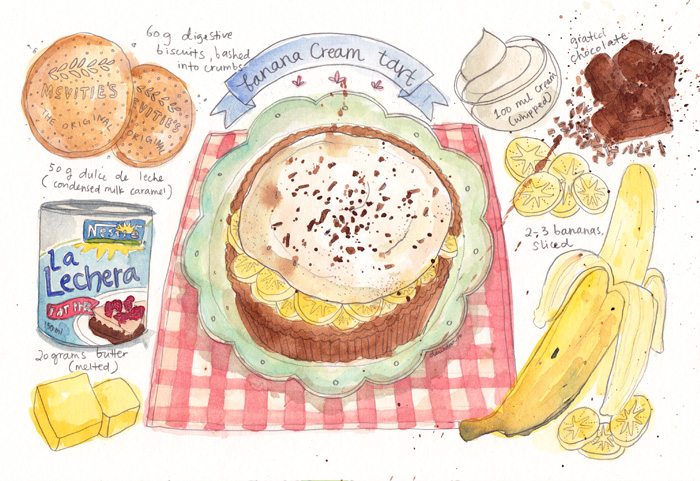 banana Cream tart
60g digestive
biscuits, bashed
into crumbs
MSVITIE'S
THE ORIGINAL
EVITIE'S
ORIGINAL
50g dulce de leche
(condensed milk caramel)
Nestle
La
Lechera
20 grams butter
(melted)
100 ml cream
(whipped)
chocolate
2-3 bananas,
sliced